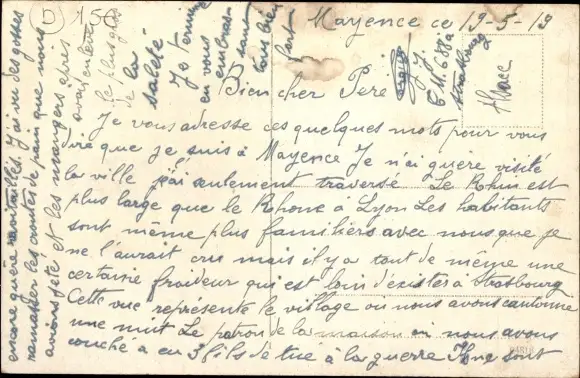 D 150
Mayence ce 19-5-19
Bien cher Père
Je vous adresse ces quelques mots pour vous
dire que je suis à Mayence Je n'ai guère visité
la ville j'ai seulement traversé Le Rhin est
plus large que le Rhone à Lyon Les habitants
sont même plus familiers avec nous que je
ne l'aurait cru mais il y a tout de même une
certaine froideur qui est loin d'exister à Strasbourg
Cette vue représente le village ou nous avons cantonné
une nuit Le patron de la maison ou nous avons
couché a eu 3 fils de tué à la guerre Ils ne sont
encore guère ravitaillés. J'ai vu des gosses
ramasser les croutes de pain que nous
avions jeté et les manger après
avoir enlevé
le plus gros
de la
saleté
Je termine
en vous
embras-
sant
tous bien
fort
J.J.
C.M. 688a
Strasbourg
Alsace
PARIS